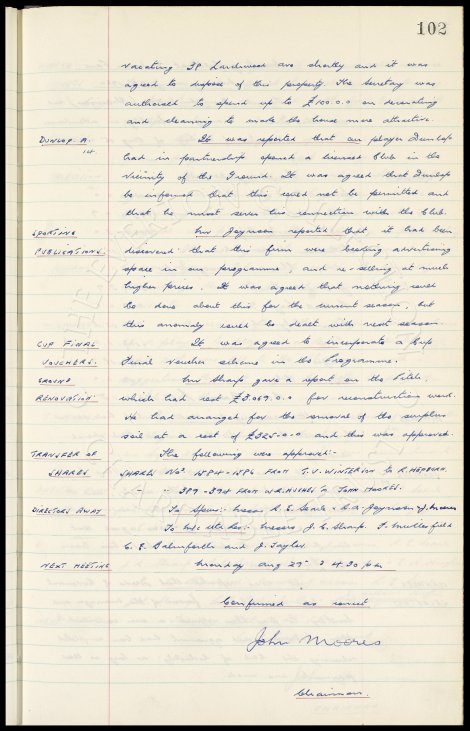 102
vacating 38 Lardswood ave shortly and it was
agreed to dispose of this property. The Secretary was
authorised to spend up to £100.0.0 on decorating
and cleaning to make the house more attractive.
DUNLOP. A. It was reported that our player Dunlop
had in partnership opened a licensed Club in the
vicinity of the Ground. It was agreed that Dunlop
be informed that this could not be permitted and
that he must sever his connection with the Club.
SPORTING Mr Joynson reported that it had been
PUBLICATIONS. discovered that this firm were booking advertising
space in our programme, and re-selling at much
higher prices. It was agreed that nothing could
be done about this for the current season, but
this anomaly could be dealt with next season.
CUP FINAL It was agreed to incorporate a Cup
VOUCHERS. Final Voucher scheme in the Programme.
GROUND Mr Sharp gave a report on the Pitch,
RENOVATION which had cost £3069.0.0 for reconstruction work.
He had arranged for the removal of the surplus
soil at a cost of £325-0-0 and this was approved.
TRANSFER OF The following were approved:-
SHARES SHARES Nos. 1584-1586 FROM T.V. WINTERTON to R. HEPBURN.
" " 389-394 FROM W.R. HUGHES to JOHN MOORES.
DIRECTORS AWAY To Spurs:- Messrs R. E. Searle C.A. Joynson & J. Moores
To :- Messrs J. C. Sharp. F. Micklesfield
C. E. Balmforth and J. Taylor.
NEXT MEETING Monday Aug 29th. @ 4.30 pm
Confirmed as correct
John Moores
Chairman.